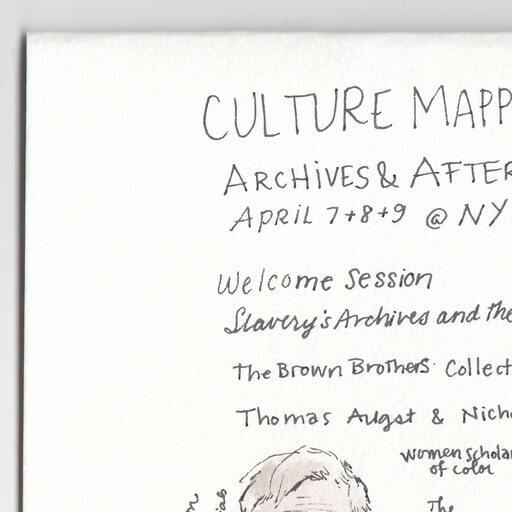 CULTURE MAPP
ARCHIVES & AFTER
APRIL 7+8+9 @ NY
Welcome Session
Slavery's Archives and the
The Brown Brothers Collect
Thomas Augst & Nicho
women scholar
of color
The